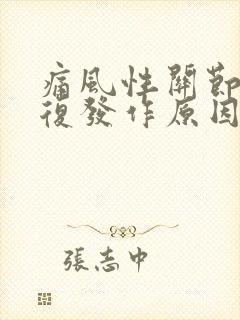 痛風性關節
復發作原因
張志中